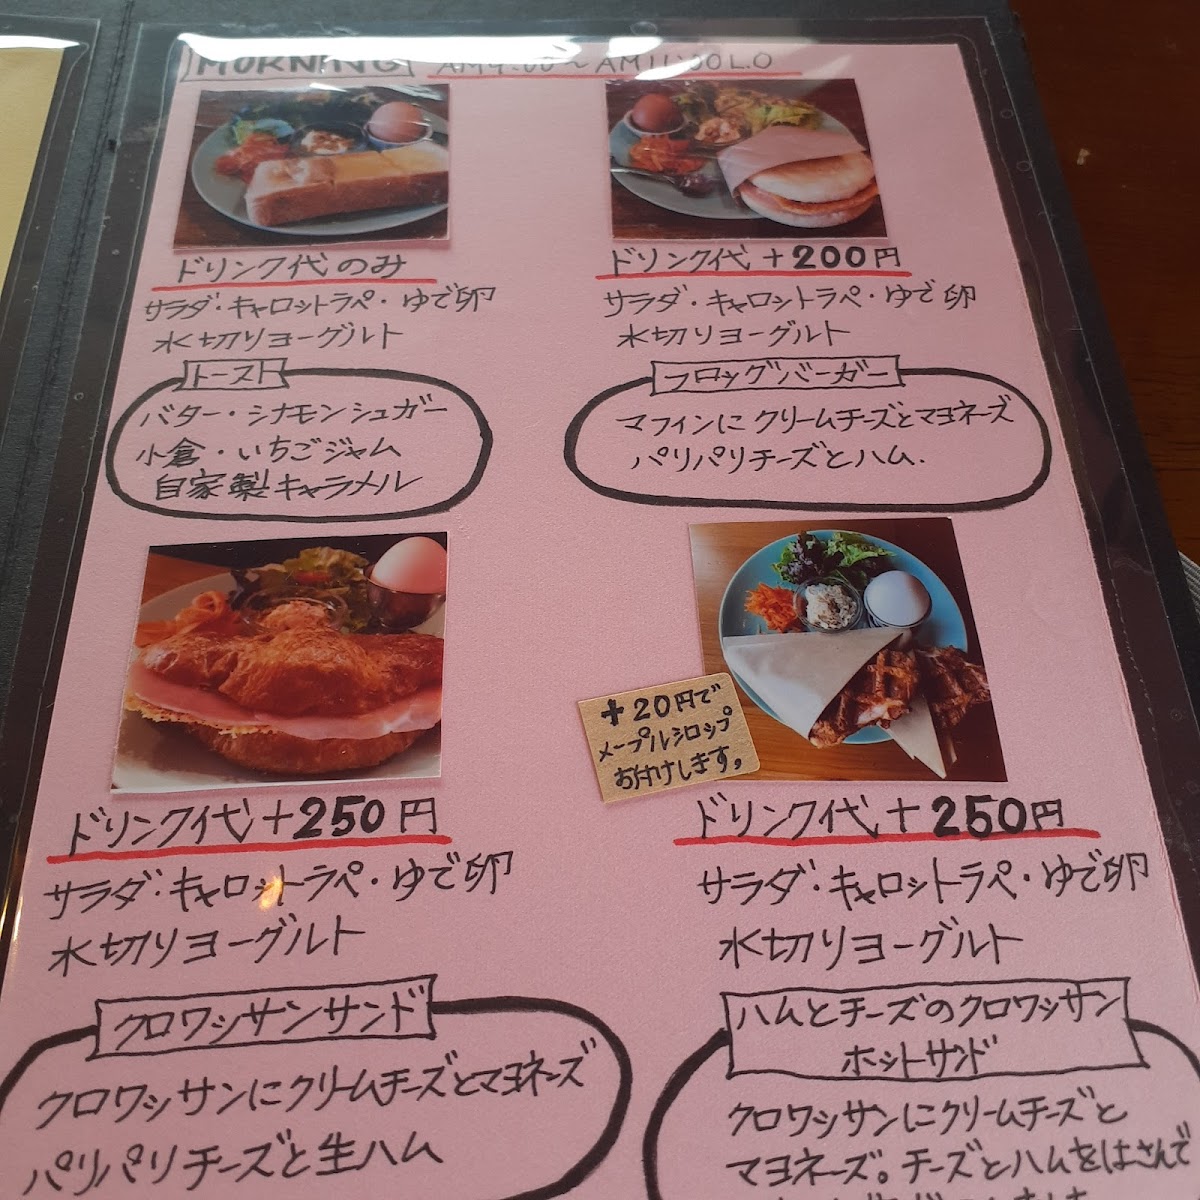 MORNING AM9:00〜AM11:00L.O
ドリンク代のみ
サラダ・キャロットラペ・ゆで卵
水切りヨーグルト
トースト
バター・シナモンシュガー
小倉・いちごジャム
自家製キャラメル
ドリンク代+200円
サラダ・キャロットラペ・ゆで卵
水切りヨーグルト
フロッグバーガー
マフィンにクリームチーズとマヨネーズ
パリパリチーズとハム.
ドリンク代+250円
サラダ・キャロットラペ・ゆで卵
水切りヨーグルト
クロワッサンサンド
クロワッサンにクリームチーズとマヨネーズ
パリパリチーズと生ハム
+20円で
メープルシロップ
お付けします。
ドリンク代+250円
サラダ・キャロットラペ・ゆで卵
水切りヨーグルト
ハムとチーズのクロワッサン
ホットサンド
クロワッサンにクリームチーズと
マヨネーズ。チーズとハムをはさんで